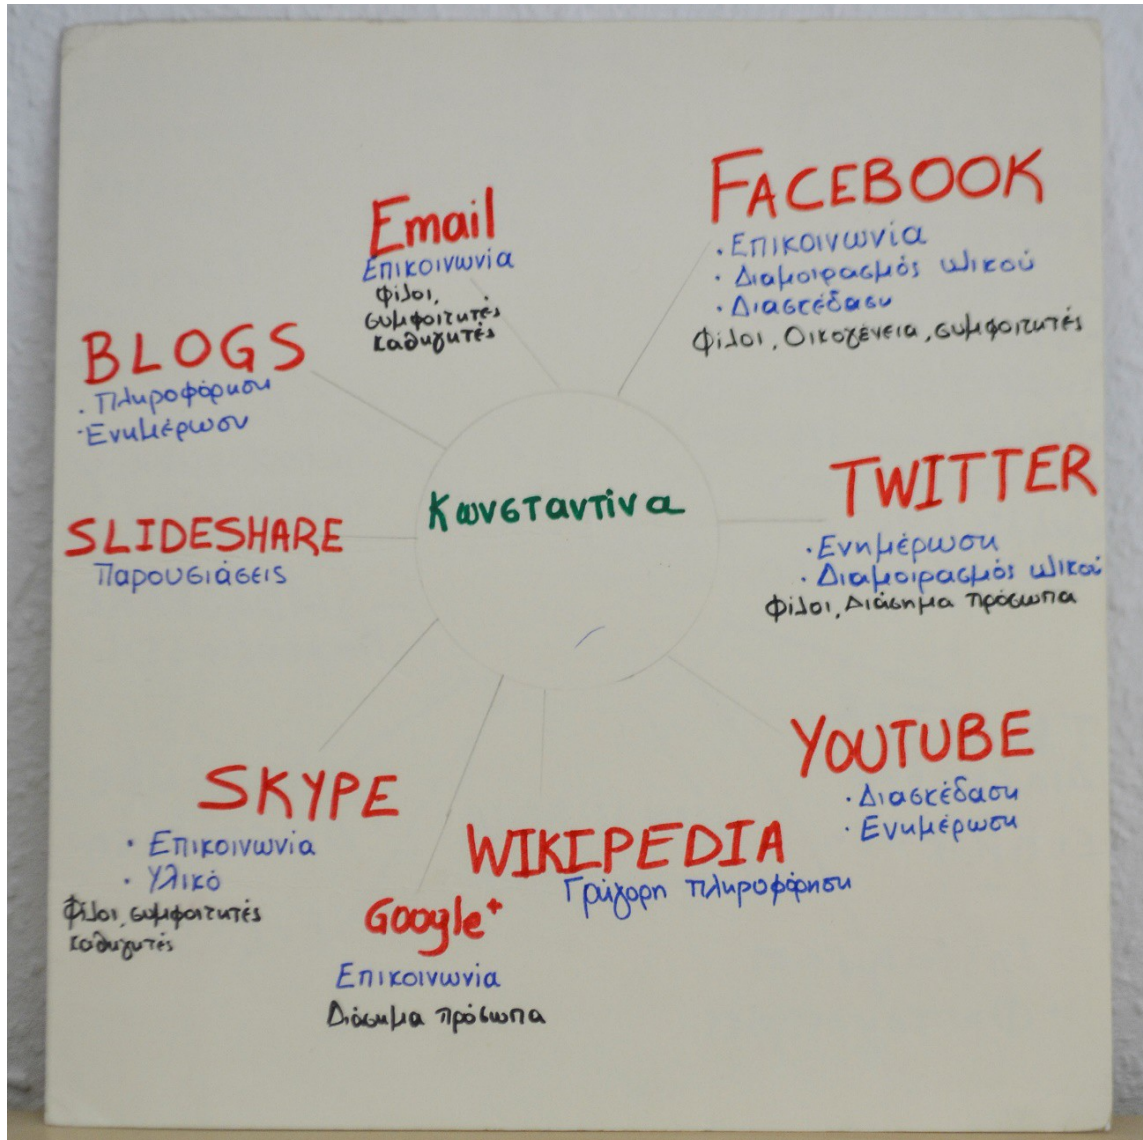 Email
Επικοινωνία
Φίλοι,
συμφοιτητές
καθηγητές
FACEBOOK
· Επικοινωνία
· Διαμοιρασμός υλικού
· Διασκέδαση
Φίλοι, Οικογένεια, συμφοιτητές
BLOGS
· Πληροφόρηση
· Ενημέρωση
Κωνσταντίνα
TWITTER
· Ενημέρωση
· Διαμοιρασμός υλικού
Φίλοι, Διάσημα πρόσωπα
SLIDESHARE
Παρουσιάσεις
YOUTUBE
· Διασκέδαση
· Ενημέρωση
SKYPE
· Επικοινωνία
· Υλικό
Φίλοι, συμφοιτητές
καθηγητές
WIKIPEDIA
Γρήγορη πληροφόρηση
Google+
Επικοινωνία
Διάσημα πρόσωπα